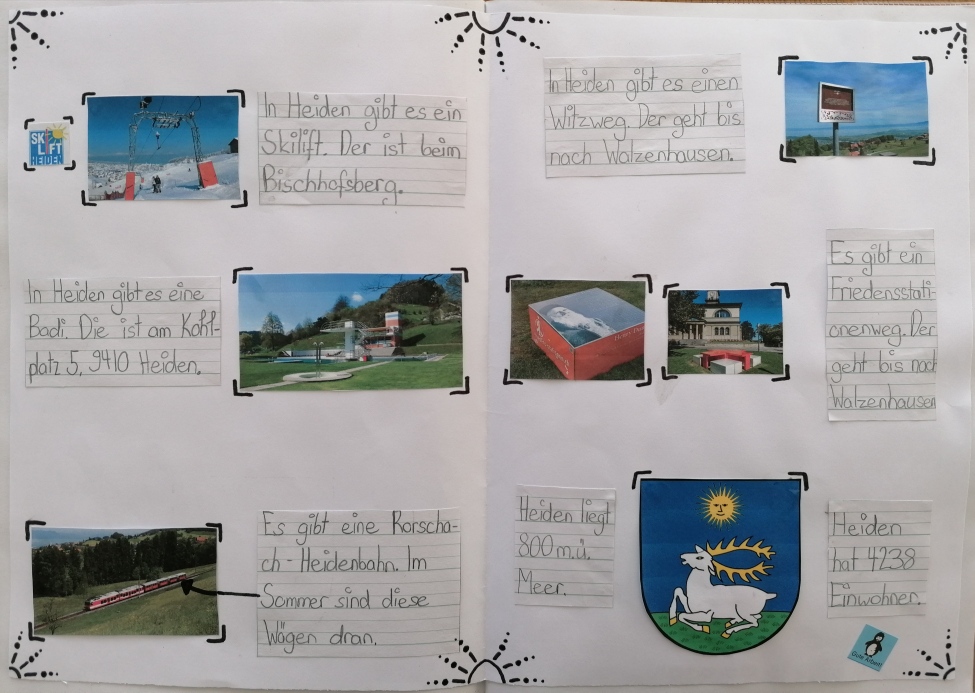 SKI
LIFT
HEIDEN
In Heiden gibt es ein
Skilift. Der ist beim
Bischhofsberg.
In Heiden gibt es eine
Badi. Die ist am Kohl-
platz 5, 9410 Heiden.
Es gibt eine Rorscha-
ch-Heidenbahn. Im
Sommer sind diese
Wägen dran.
In Heiden gibt es einen
Witzweg. Der geht bis
nach Walzenhausen.
Es gibt ein
Friedensstati-
onenweg. Der
geht bis nach
Walzenhausen
Heiden liegt
800 m.ü.
Meer.
Heiden
hat 4238
Einwohner.
Gute Arbeit!